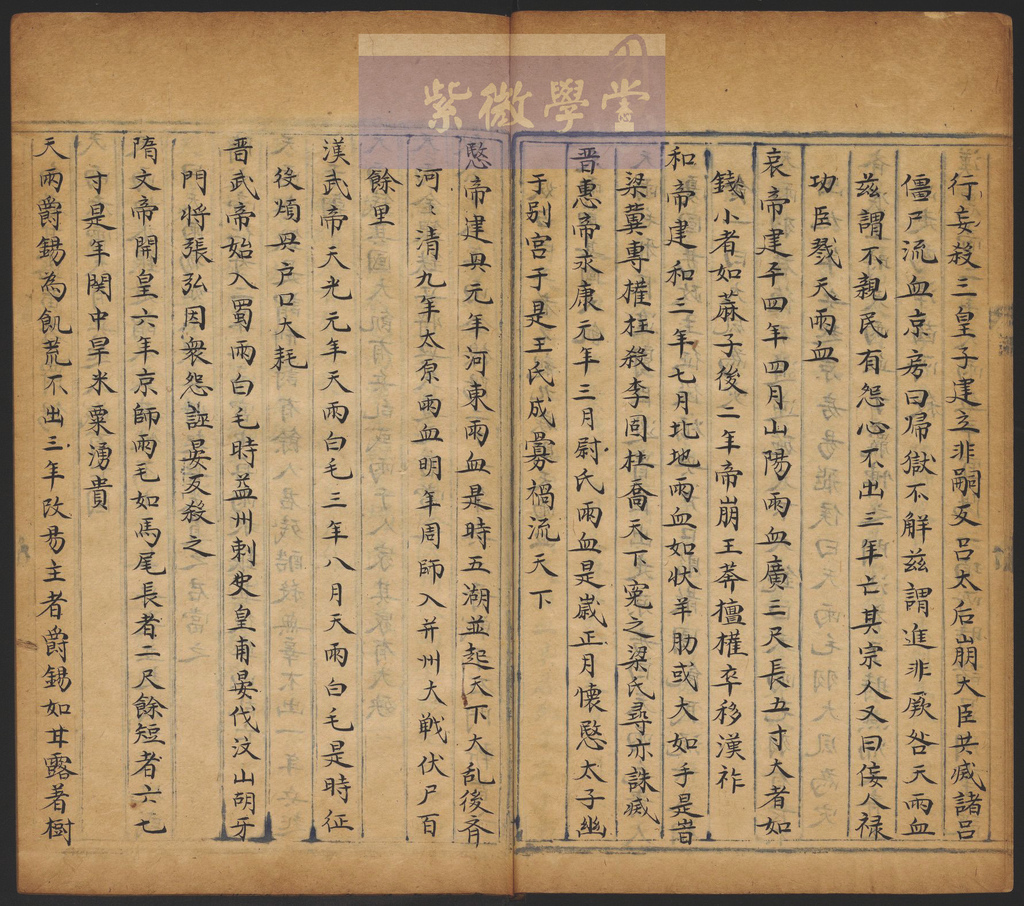 紫微學堂
行妄殺三皇子建立非嗣及呂太后崩大臣共滅諸呂
僵尸流血京房曰帰獄不解兹謂進非厥咎天雨血
兹謂不親民有怨心不出三年亡其宗人又曰佞人禄
功臣戮天雨血
哀帝建平四年四月山陽雨血廣三尺長五寸大者如
錢小者如蔴子後二年帝崩王莽檀權卒移漢祚
和帝建和三年七月北地雨血如状羊肋或大如手是昔
梁冀專權枉殺李固杜喬天下寃之梁氏尋亦誅滅
晋惠帝永康元年三月尉氏雨血是歲正月懐愍太子幽
于别宫于是王氏成釁禍流天下
愍帝建興元年河東雨血是時五湖並起天下大乱後斉
河清九年太原雨血明年周師入并州大戦伏尸百
餘里
漢武帝天光元年天雨白毛三年八月天雨白毛是時征
役煩興户口大耗
晋武帝始入蜀雨白毛時益州刺史皇甫晏伐汶山胡牙
門将張弘因衆怨誣晏反殺之
隋文帝開皇六年京師雨毛如馬尾長者二尺餘短者六七
寸是年関中旱米粟湧貴
天雨爵錫為飢荒不出三年改易主者爵錫如甘露著樹